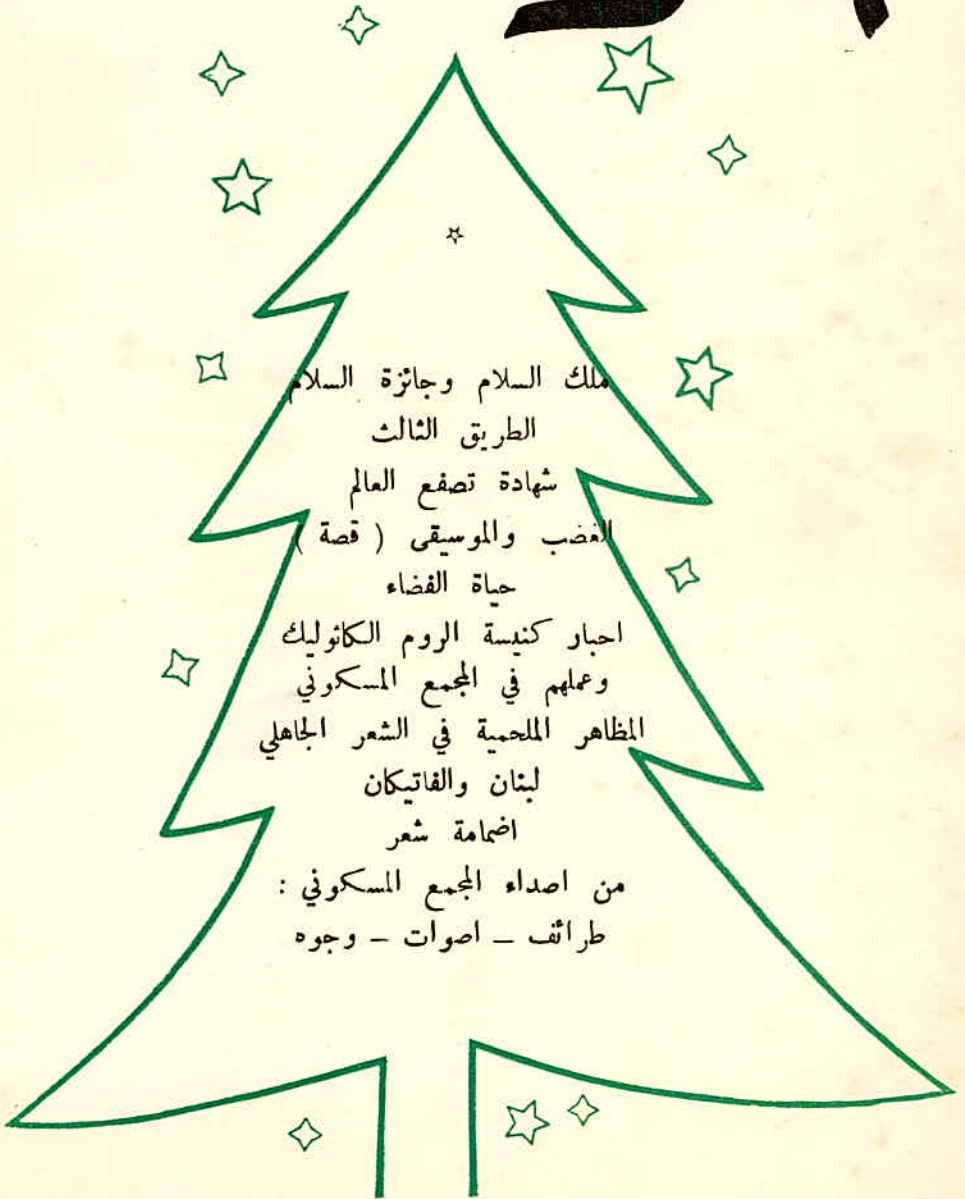 ملك السلام وجائزة السلام
الطريق الثالث
شهادة تصفع العالم
الغضب والموسيقى ( قصة )
حياة الفضاء
احبار كنيسة الروم الكاثوليك
وعملهم في المجمع المسكوني
المظاهر الملحمية في الشعر الجاهلي
لبنان والفاتيكان
اضمامة شعر
من اصداء المجمع المسكوني :
طرائف – اصوات – وجوه